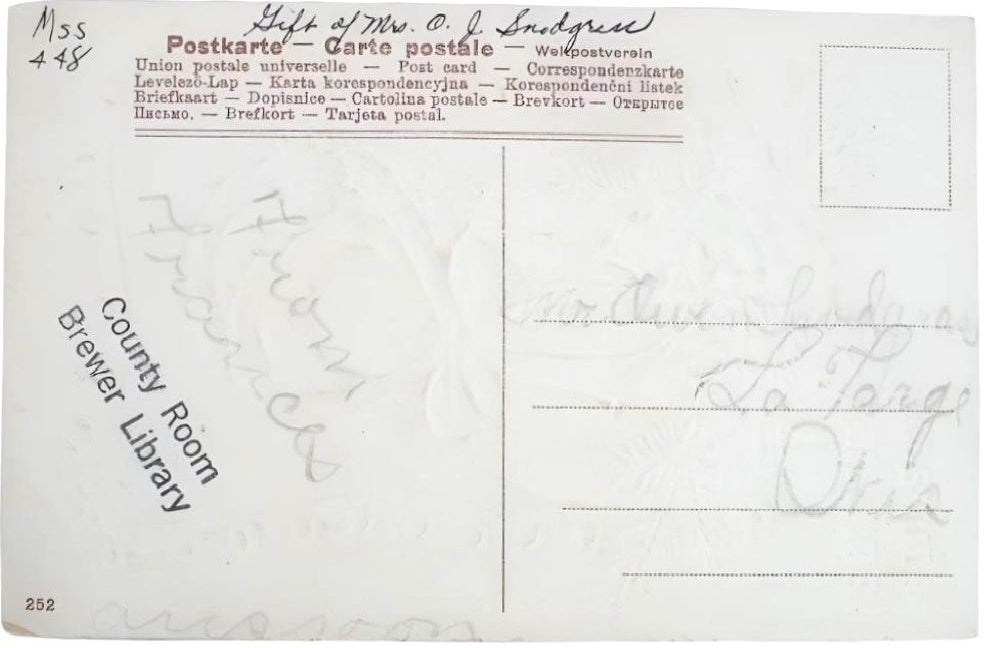 Mss
448
Gift of Mrs. O. J. Snodgrass
Postkarte — Carte postale — Weltpostverein
Union postale universelle — Post card — Correspondenzkarte
Levelező-Lap — Karta korespondencyjna — Korespondenční lístek
Briefkaart — Dopisnice — Cartolina postale — Brevkort — Открытое
Письмо. — Brefkort — Tarjeta postal.
From
Frances
County Room
Brewer Library
Mr. Owen Snodgrass
La Farge
Wis
252